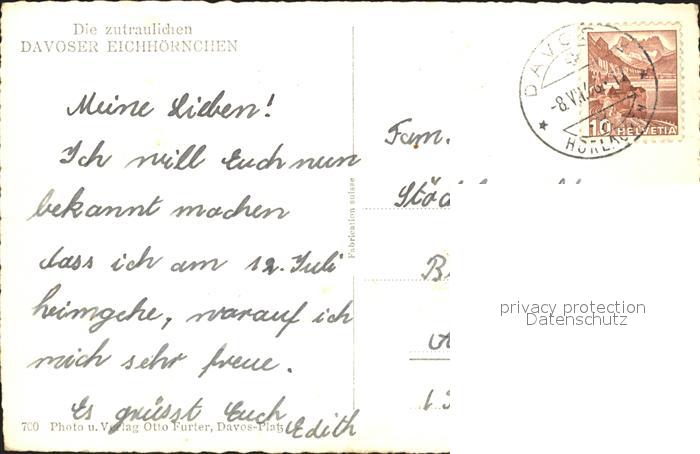 Die zutraulichen
DAVOSER EICHHÖRNCHEN
Meine Lieben!
Ich will Euch nun
bekannt machen
dass ich am 12. Juli
heimgehe, worauf ich
mich sehr freue.
Es grüsst Euch
Edith
700 Photo u. Verlag Otto Furter, Davos-Platz
Fabrication suisse
Fam.
10 HELVETIA
privacy protection
Datenschutz